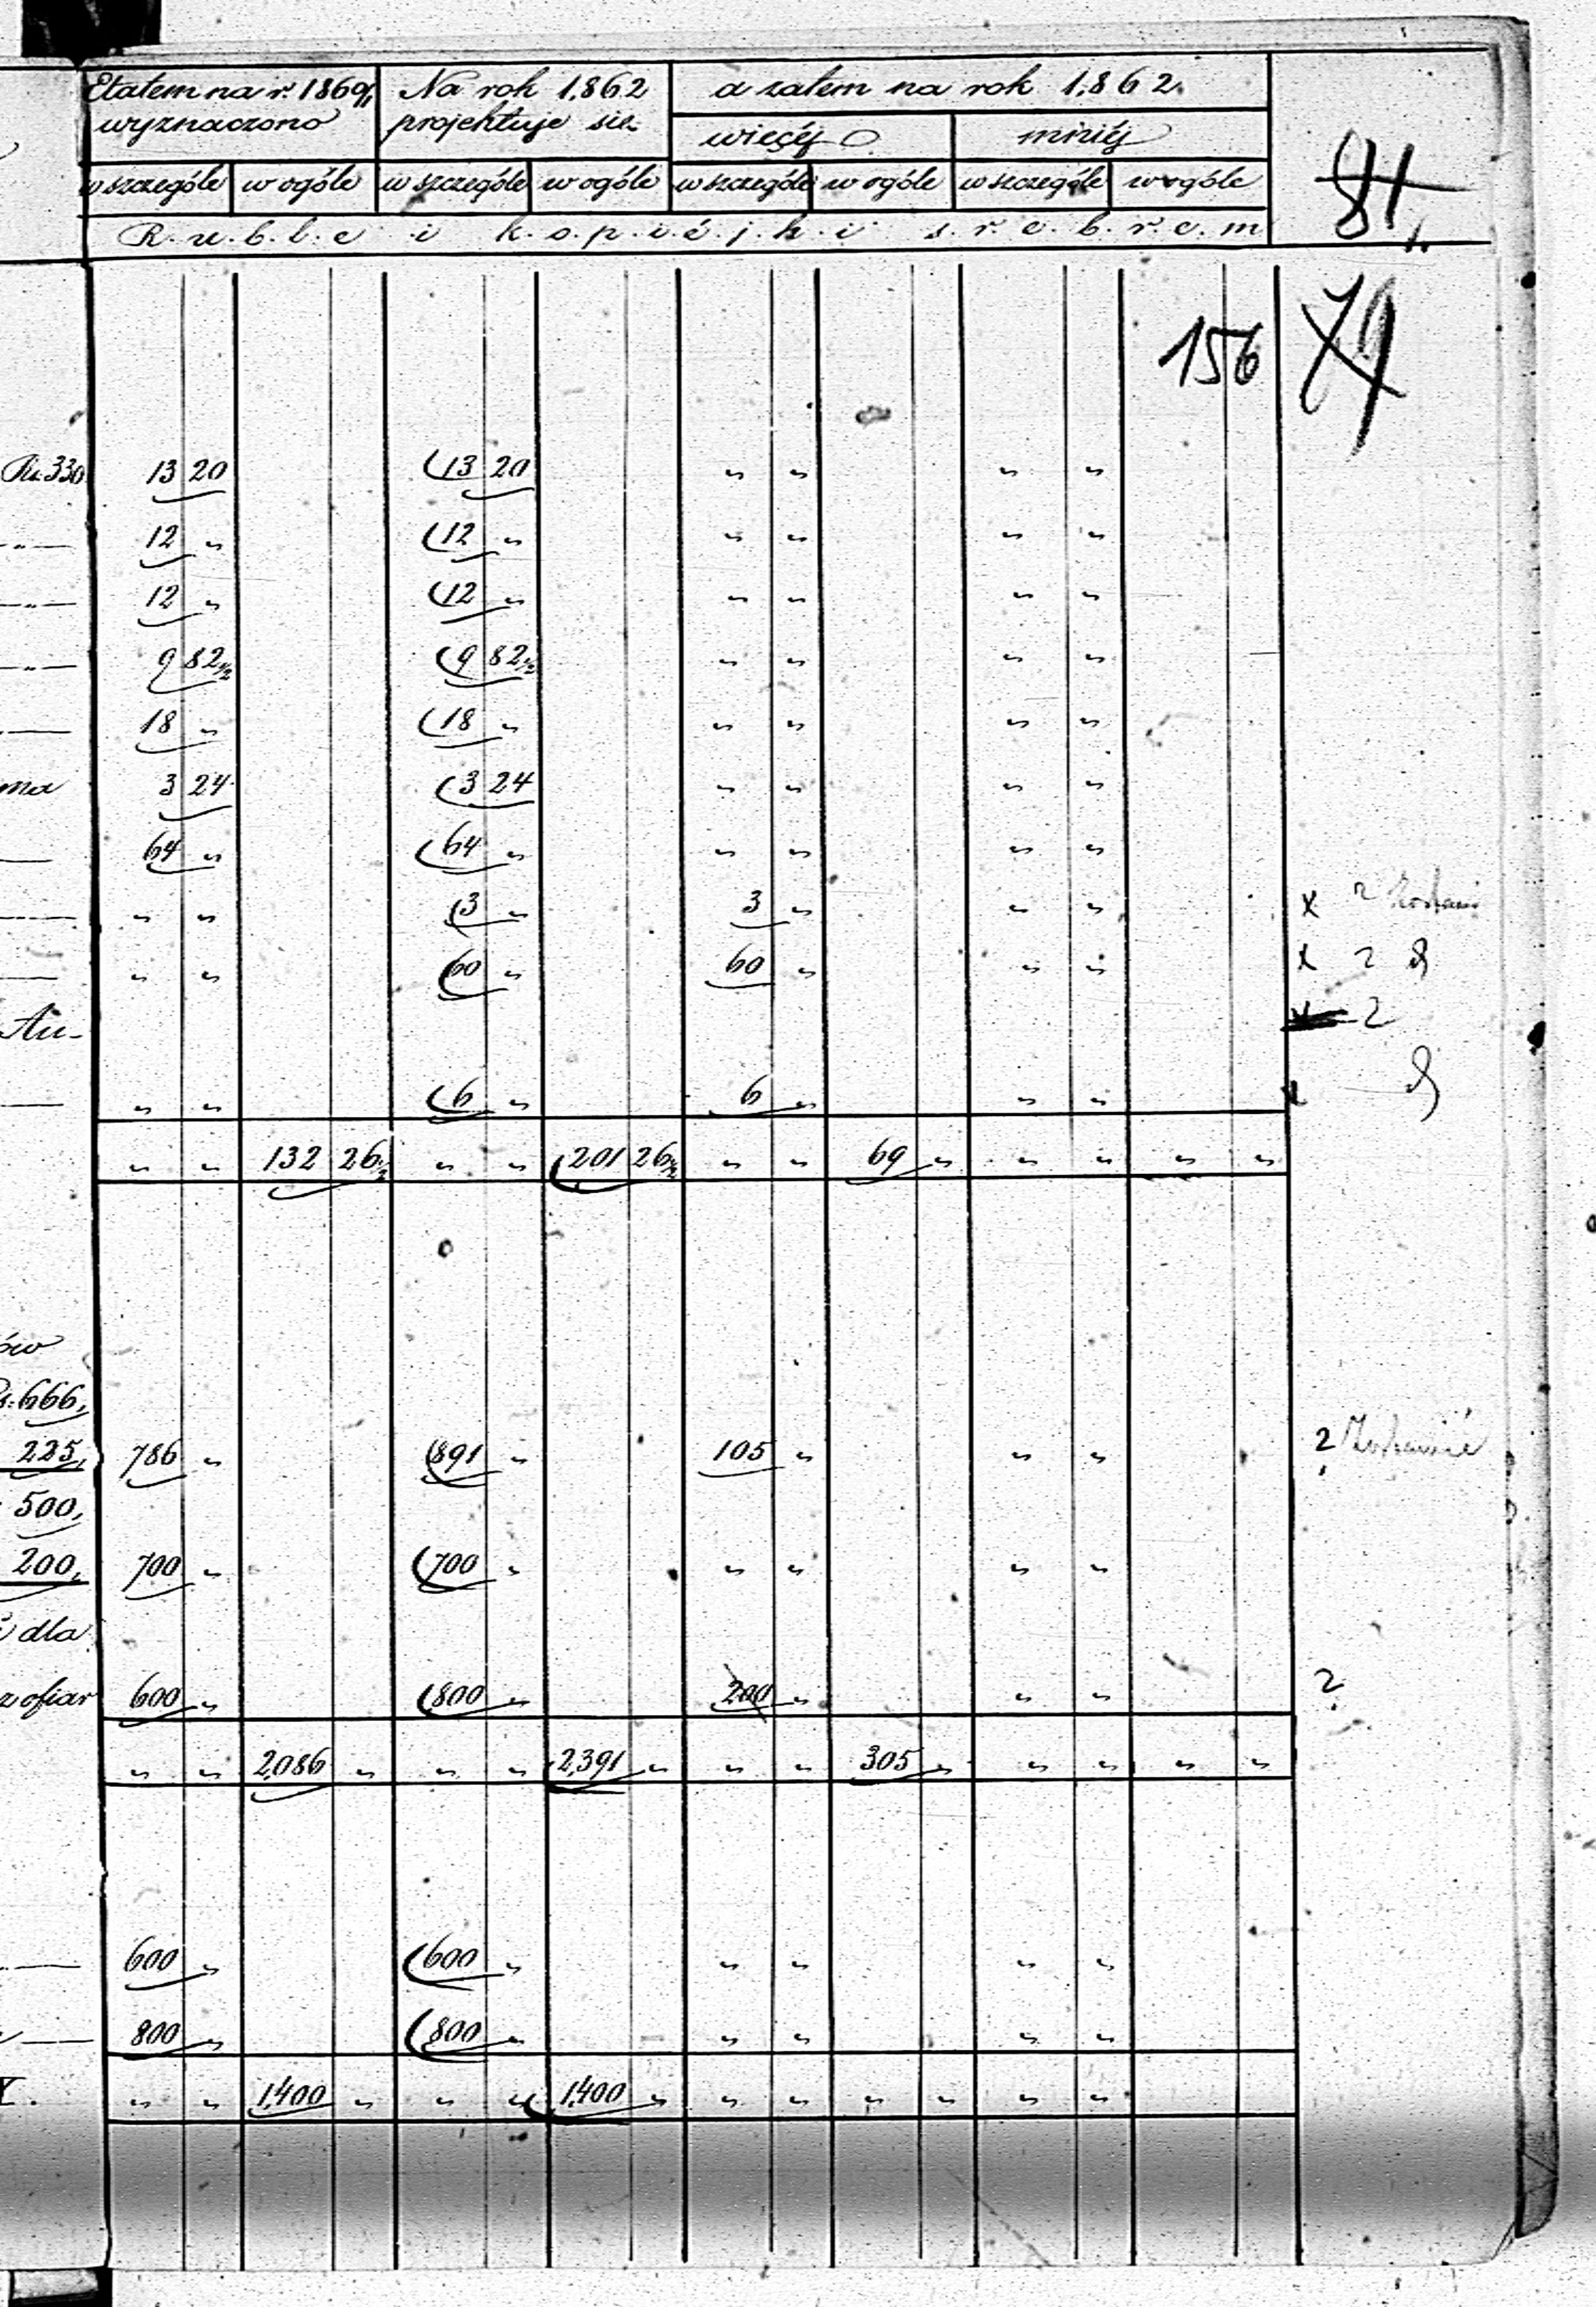 Etatem na r. 1860/1 Na rok 1,862 a zatem na rok 1,862.
wyznaczono projektuje się więcéj mniéj
w szczególe w ogóle w szczególe w ogóle w szczególe w ogóle w szczególe w ogóle
R.u.b.l.e i k.o.p.i.é.j.k.i s.r.e.b.r.e.m
81
156 79
Rs. 330 13 20 13 20 " " " "
" 12 " 12 " " " " "
" 12 " 12 " " " " "
" 9 82½ 9 82½ " " " "
18 " 18 " " " " "
3 24 3 24 " " " "
64 " 64 " " " " "
" " 3 " 3 " " " x 2
" " 60 " 60 " " " x 2
2
" " 6 " 6 " " " x
" " 132 26½ " " 201 26½ " " 69 " " " " "
ów
666,
225, 786 " 891 " 105 " " " ?
500,
200, 700 " 700 " " " " "
dla
z ofiar 600 " 800 " 200 " " " ?
" " 2,086 " " " 2,391 " " " 305 " " " " "
600 " 600 " " " " "
800 " 800 " " " " "
" " 1,400 " " " 1,400 " " " " " " "